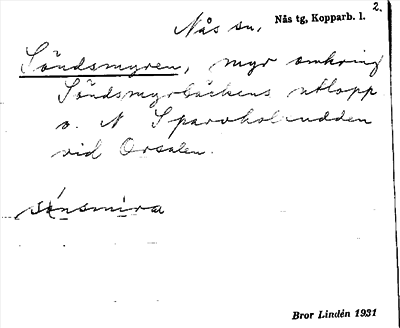 2.
Nås sn. Nås tg, Kopparb. l.
Söndsmyren, myr omkring
Söndsmyrbäckens utlopp
o. N Sparvholsudden
vid Orsalen.
Bror Lindén 1931